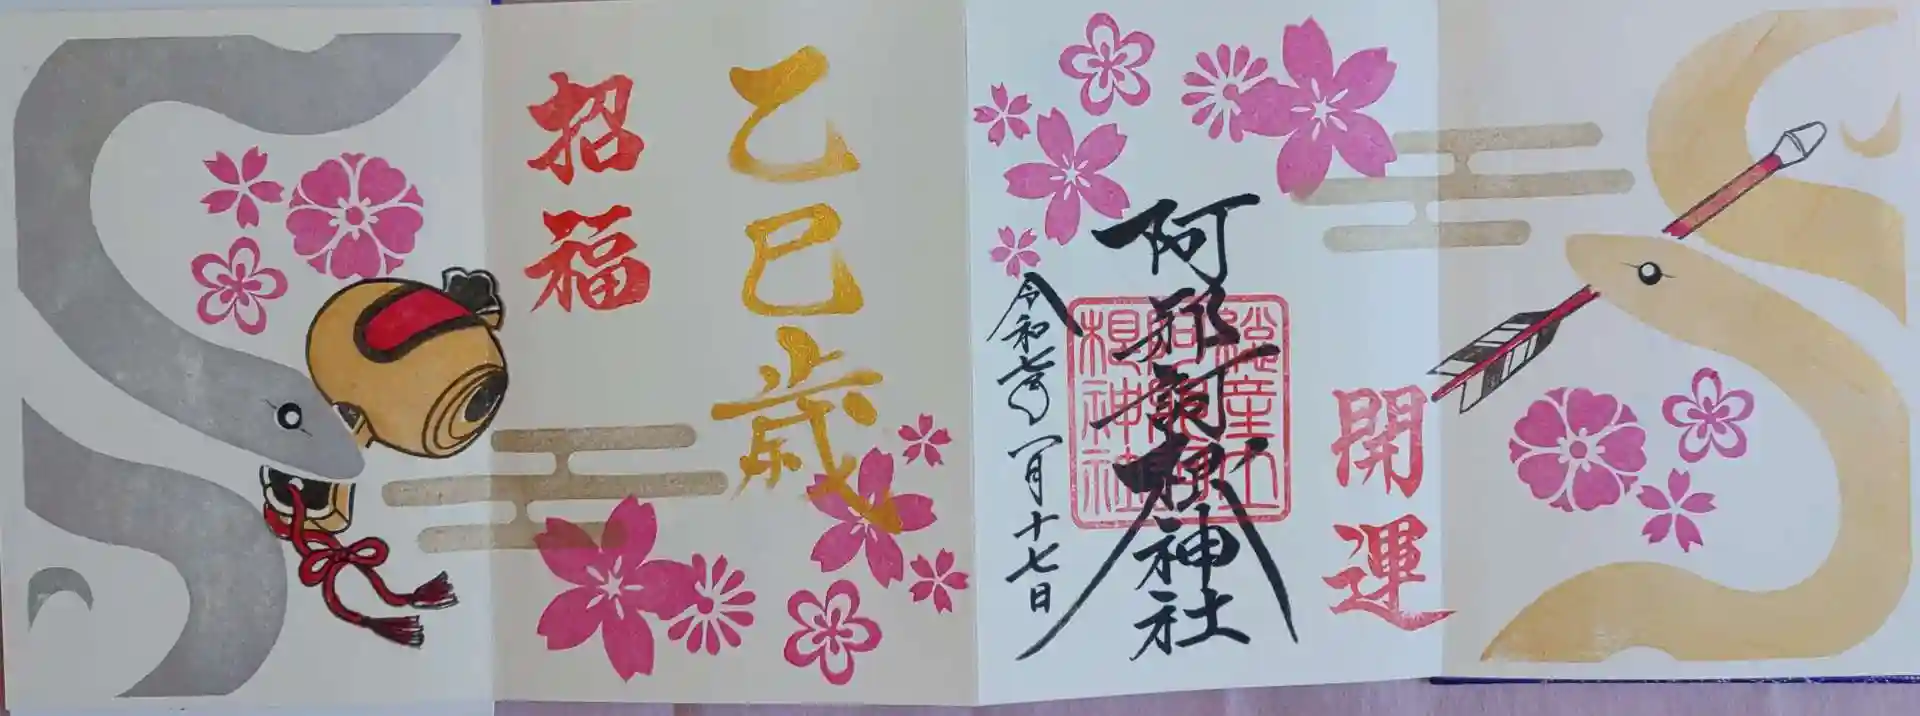 開運
阿邪訶根神社
總産土
阿邪訶
根神社
令和七年一月十七日
乙巳歳
招福